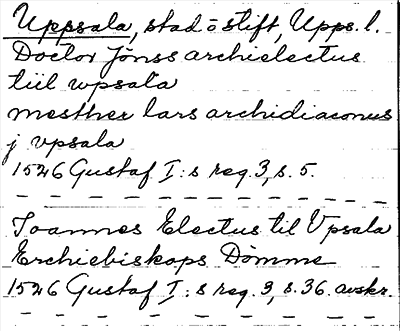 Uppsala, stad o stift, Upps. l.
Doctor Jönss archielectus
tiil wpsala
mesther lars archidiaconus
j vpsala
1526 Gustaf I:s reg. 3, s. 5.
Joannes Electus til Vpsala
Erchiebiskops Dömme
1526 Gustaf I:s reg. 3, s. 36. avskr.